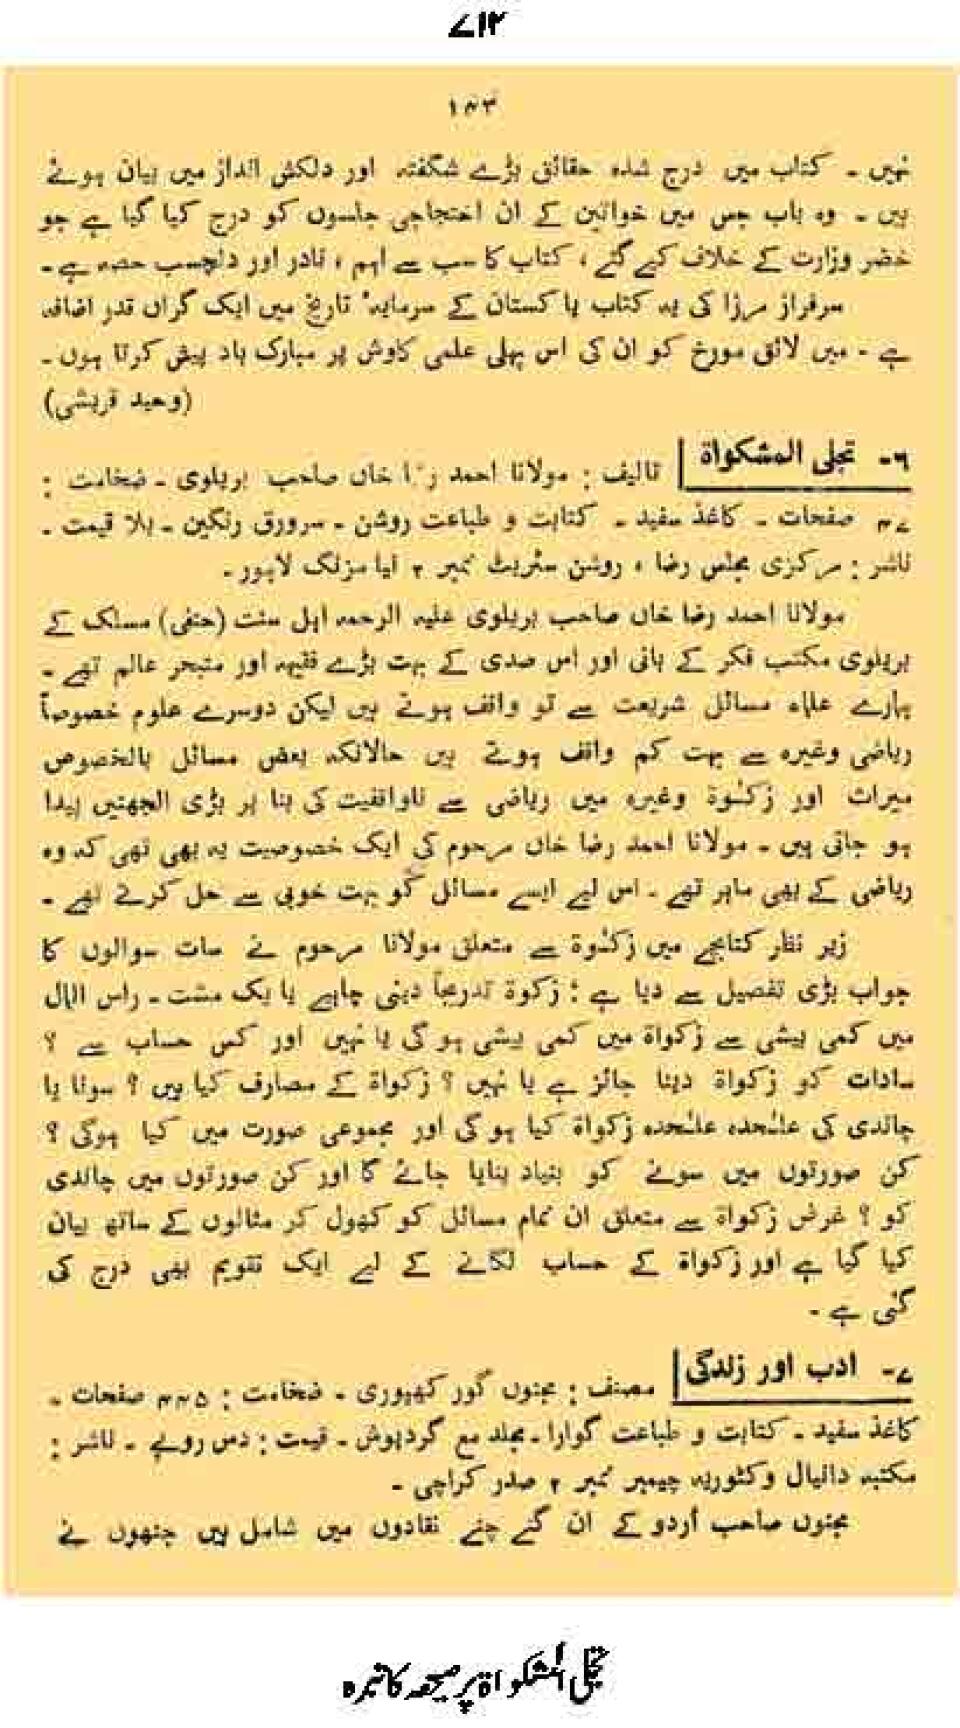 ۷۱۲
۱۴۳
نہیں ۔ کتاب میں درج شدہ حقائق بڑے شگفتہ اور دلکش انداز میں بیان ہوئے
ہیں ۔ وہ باب جس میں خواتین کے ان احتجاجی جلسوں کو درج کیا گیا ہے جو
خضر وزارت کے خلاف کیے گئے ، کتاب کا سب سے اہم ، نادر اور دلچسپ حصہ ہے ۔
سرفراز مرزا کی یہ کتاب پاکستان کے سرمایۂ تاریخ میں ایک گراں قدر اضافہ
ہے ۔ میں لائق مورخ کو ان کی اس پہلی علمی کاوش پر مبارک باد پیش کرتا ہوں ۔
(وحید قریشی)
۶۔ تجلی المشکواۃ
تالیف : مولانا احمد رضا خاں صاحب بریلوی ۔ ضخامت :
۴۷ صفحات ۔ کاغذ سفید ۔ کتابت و طباعت روشن ۔ سرورق رنگین ۔ بلا قیمت ۔
ناشر : مرکزی مجلس رضا ، روشن سٹریٹ نمبر ۲ نیا مزنگ لاہور ۔
مولانا احمد رضا خاں صاحب بریلوی علیہ الرحمہ اہل سنت (حنفی) مسلک کے
بریلوی مکتب فکر کے بانی اور اس صدی کے بہت بڑے فقیہہ اور متبحر عالم تھے ۔
ہمارے علماء مسائل شریعت سے تو واقف ہوتے ہیں لیکن دوسرے علوم خصوصاً
ریاضی وغیرہ سے بہت کم واقف ہوتے ہیں حالانکہ بعض مسائل بالخصوص
میراث اور زکوٰۃ وغیرہ میں ریاضی سے ناواقفیت کی بنا پر بڑی الجھنیں پیدا
ہو جاتی ہیں ۔ مولانا احمد رضا خاں مرحوم کی ایک خصوصیت یہ بھی تھی کہ وہ
ریاضی کے بھی ماہر تھے ۔ اس لیے ایسے مسائل کو بہت خوبی سے حل کرتے تھے ۔
زیر نظر کتابچے میں زکوٰۃ سے متعلق مولانا مرحوم نے سات سوالوں کا
جواب بڑی تفصیل سے دیا ہے : زکوۃ تدریجاً دینی چاہے یا یک مشت ۔ راس المال
میں کمی بیشی سے زکواۃ میں کمی بیشی ہو گی یا نہیں اور کس حساب سے ؟
سادات کو زکواۃ دینا جائز ہے یا نہیں ؟ زکواۃ کے مصارف کیا ہیں ؟ سونا یا
چاندی کی علٰحدہ علٰحدہ زکواۃ کیا ہو گی اور مجموعی صورت میں کیا ہوگی ؟
کن صورتوں میں سونے کو بنیاد بنایا جائے گا اور کن صورتوں میں چاندی
کو ؟ غرض زکواۃ سے متعلق ان تمام مسائل کو کھول کر مثالوں کے ساتھ بیان
کیا گیا ہے اور زکواۃ کے حساب لگانے کے لیے ایک تقویم بھی درج کی
گئی ہے ۔
۷۔ ادب اور زندگی
مصنف : مجنوں گور کھپوری ۔ ضخامت : ۴۴۵ صفحات ۔
کاغذ سفید ۔ کتابت و طباعت گوارا ۔ مجلد مع گردپوش ۔ قیمت : دس روپے ۔ ناشر :
مکتبہ دانیال وکٹوریہ چیمبر نمبر ۲ صدر کراچی ۔
مجنوں صاحب اُردو کے ان گنے چنے نقادوں میں شامل ہیں جنھوں نے
تجلی المشکواۃ پر صحیفہ کا تبصرہ